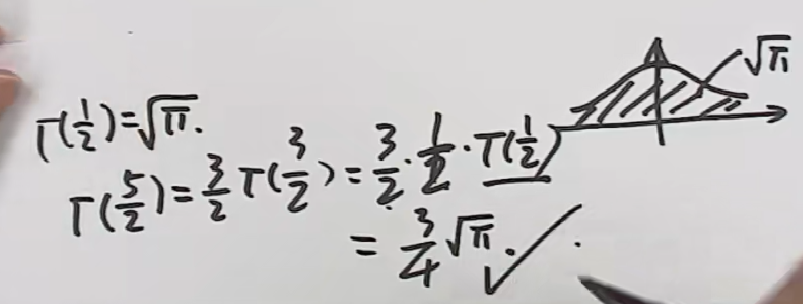 √π
Γ(1/2)=√π.
Γ(5/2)=3/2 Γ(3/2)=3/2·1/2·Γ(1/2)
=3/4 √π. ✓